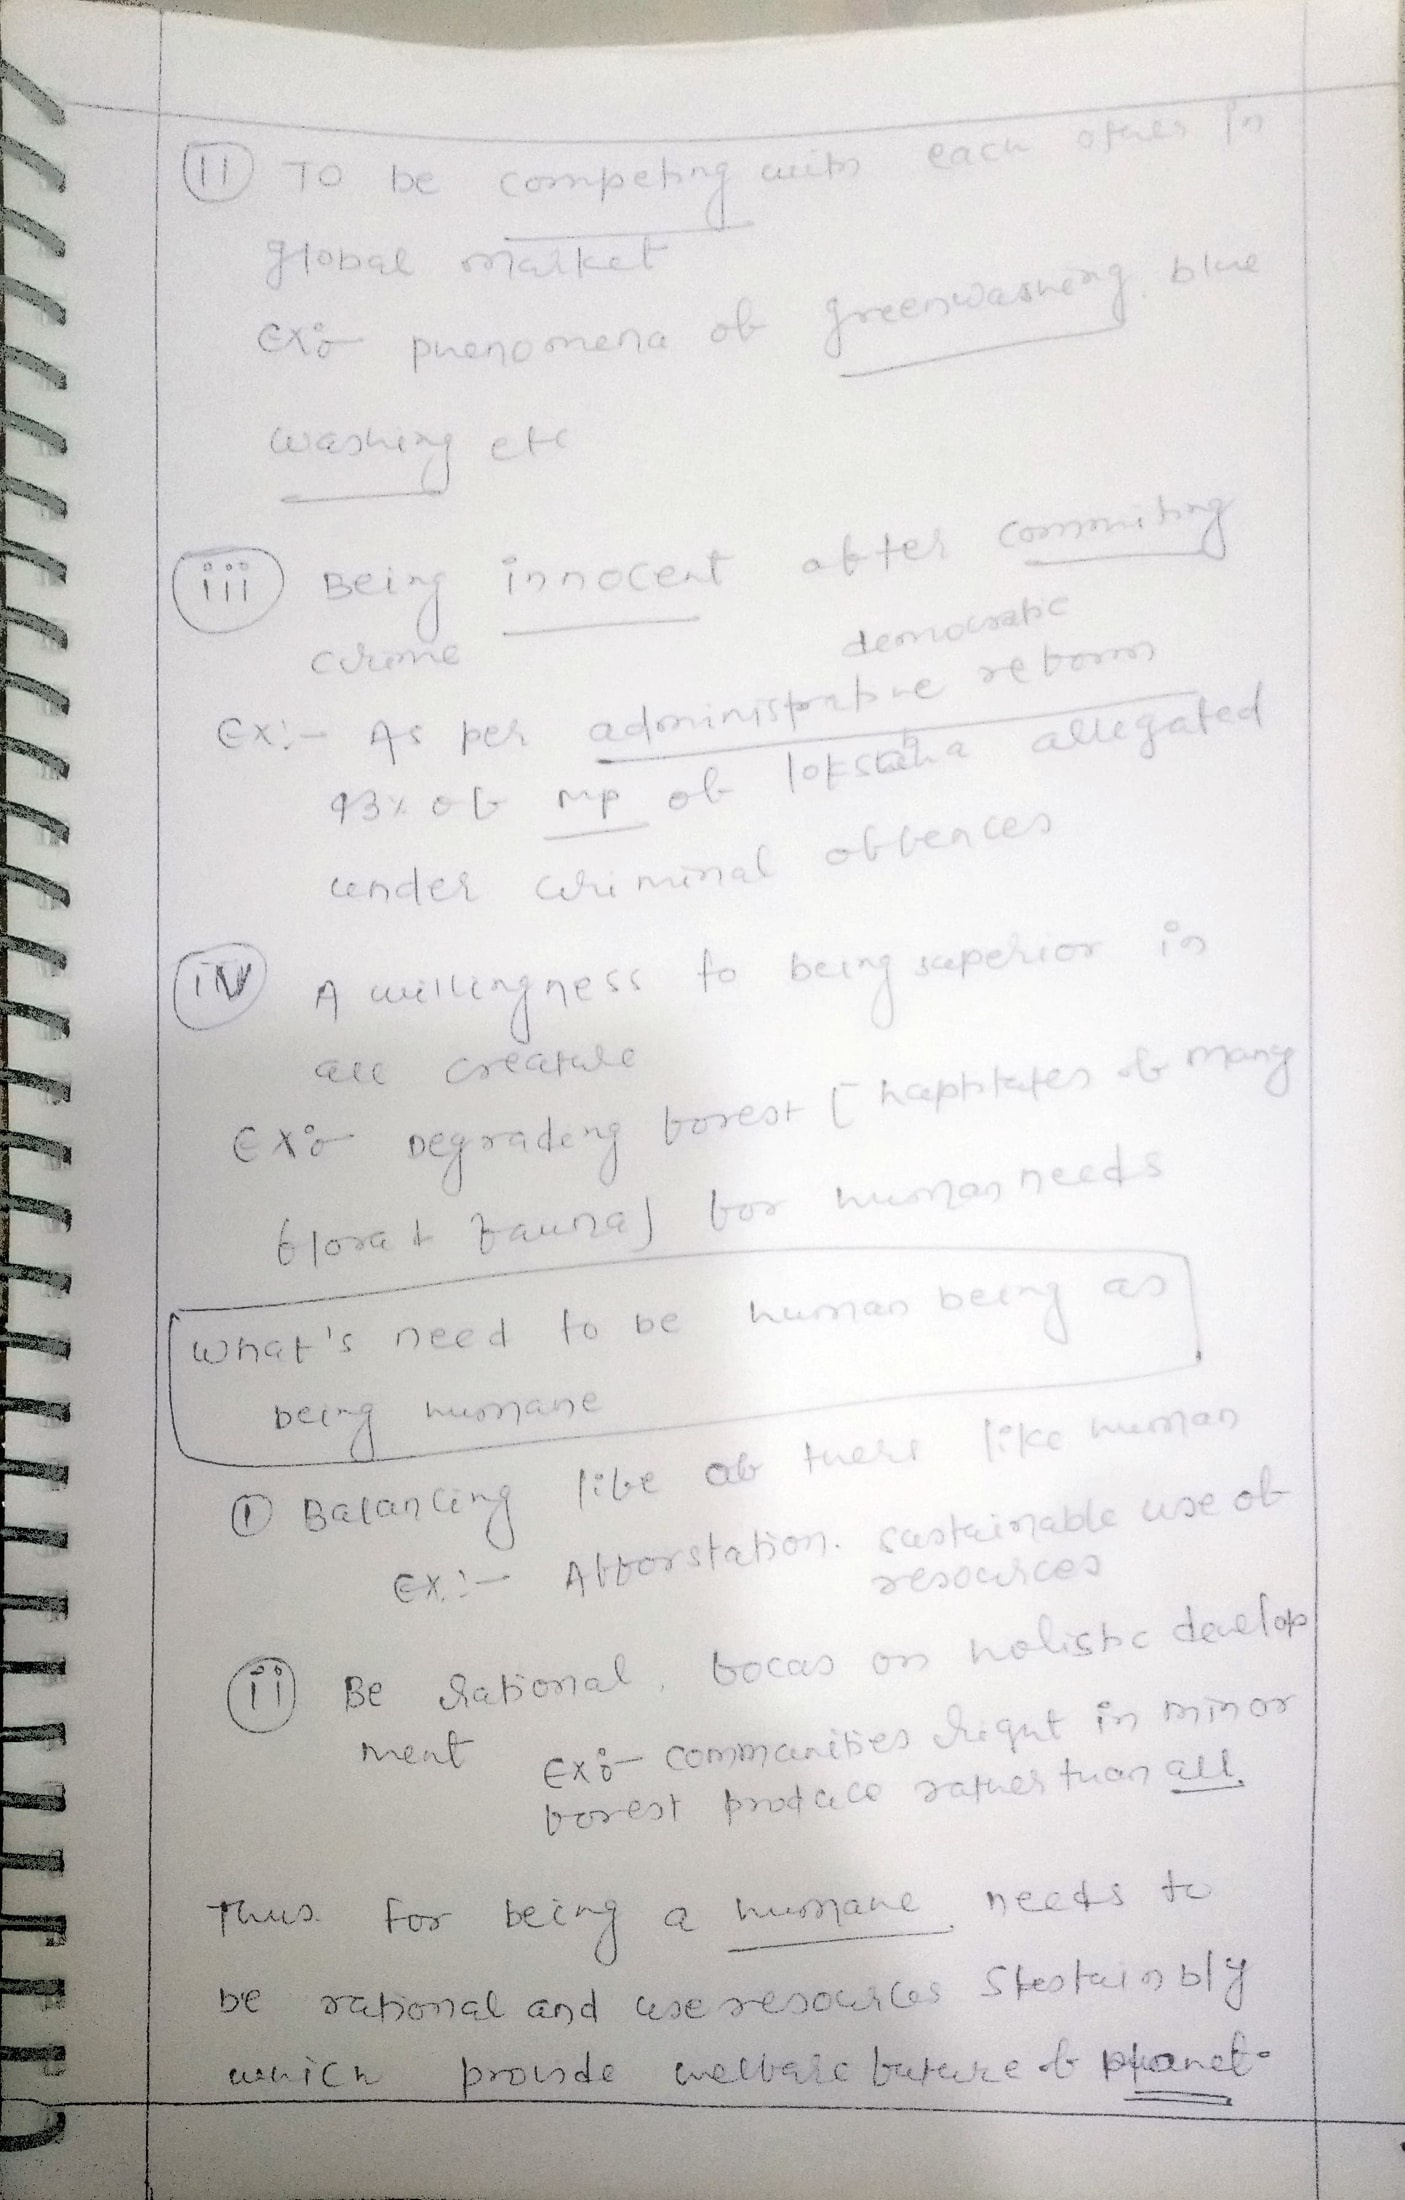 (ii) To be competing with each other in
global market
Ex:- phenomena of greenwashing, blue
washing etc
(iii) Being innocent after commiting
crime
democratic
Ex:- As per administrative reform
93% of MP of loksabha allegated
under criminal offences
(iv) A willingness to being superior in
all creature
Ex:- Degrading forest [ haptitates of many
flora & fauna] for human needs
What's need to be human being as
being humane
(i) Balancing life of there like human
Ex:- Afforstation. sustainable use of
resources
(ii) Be rational, focus on holistic develop
ment
Ex:- communities right in minor
forest produce rather than all
Thus for being a humane, needs to
be rational and use resources sustainbly
which provide welfare future of planet.